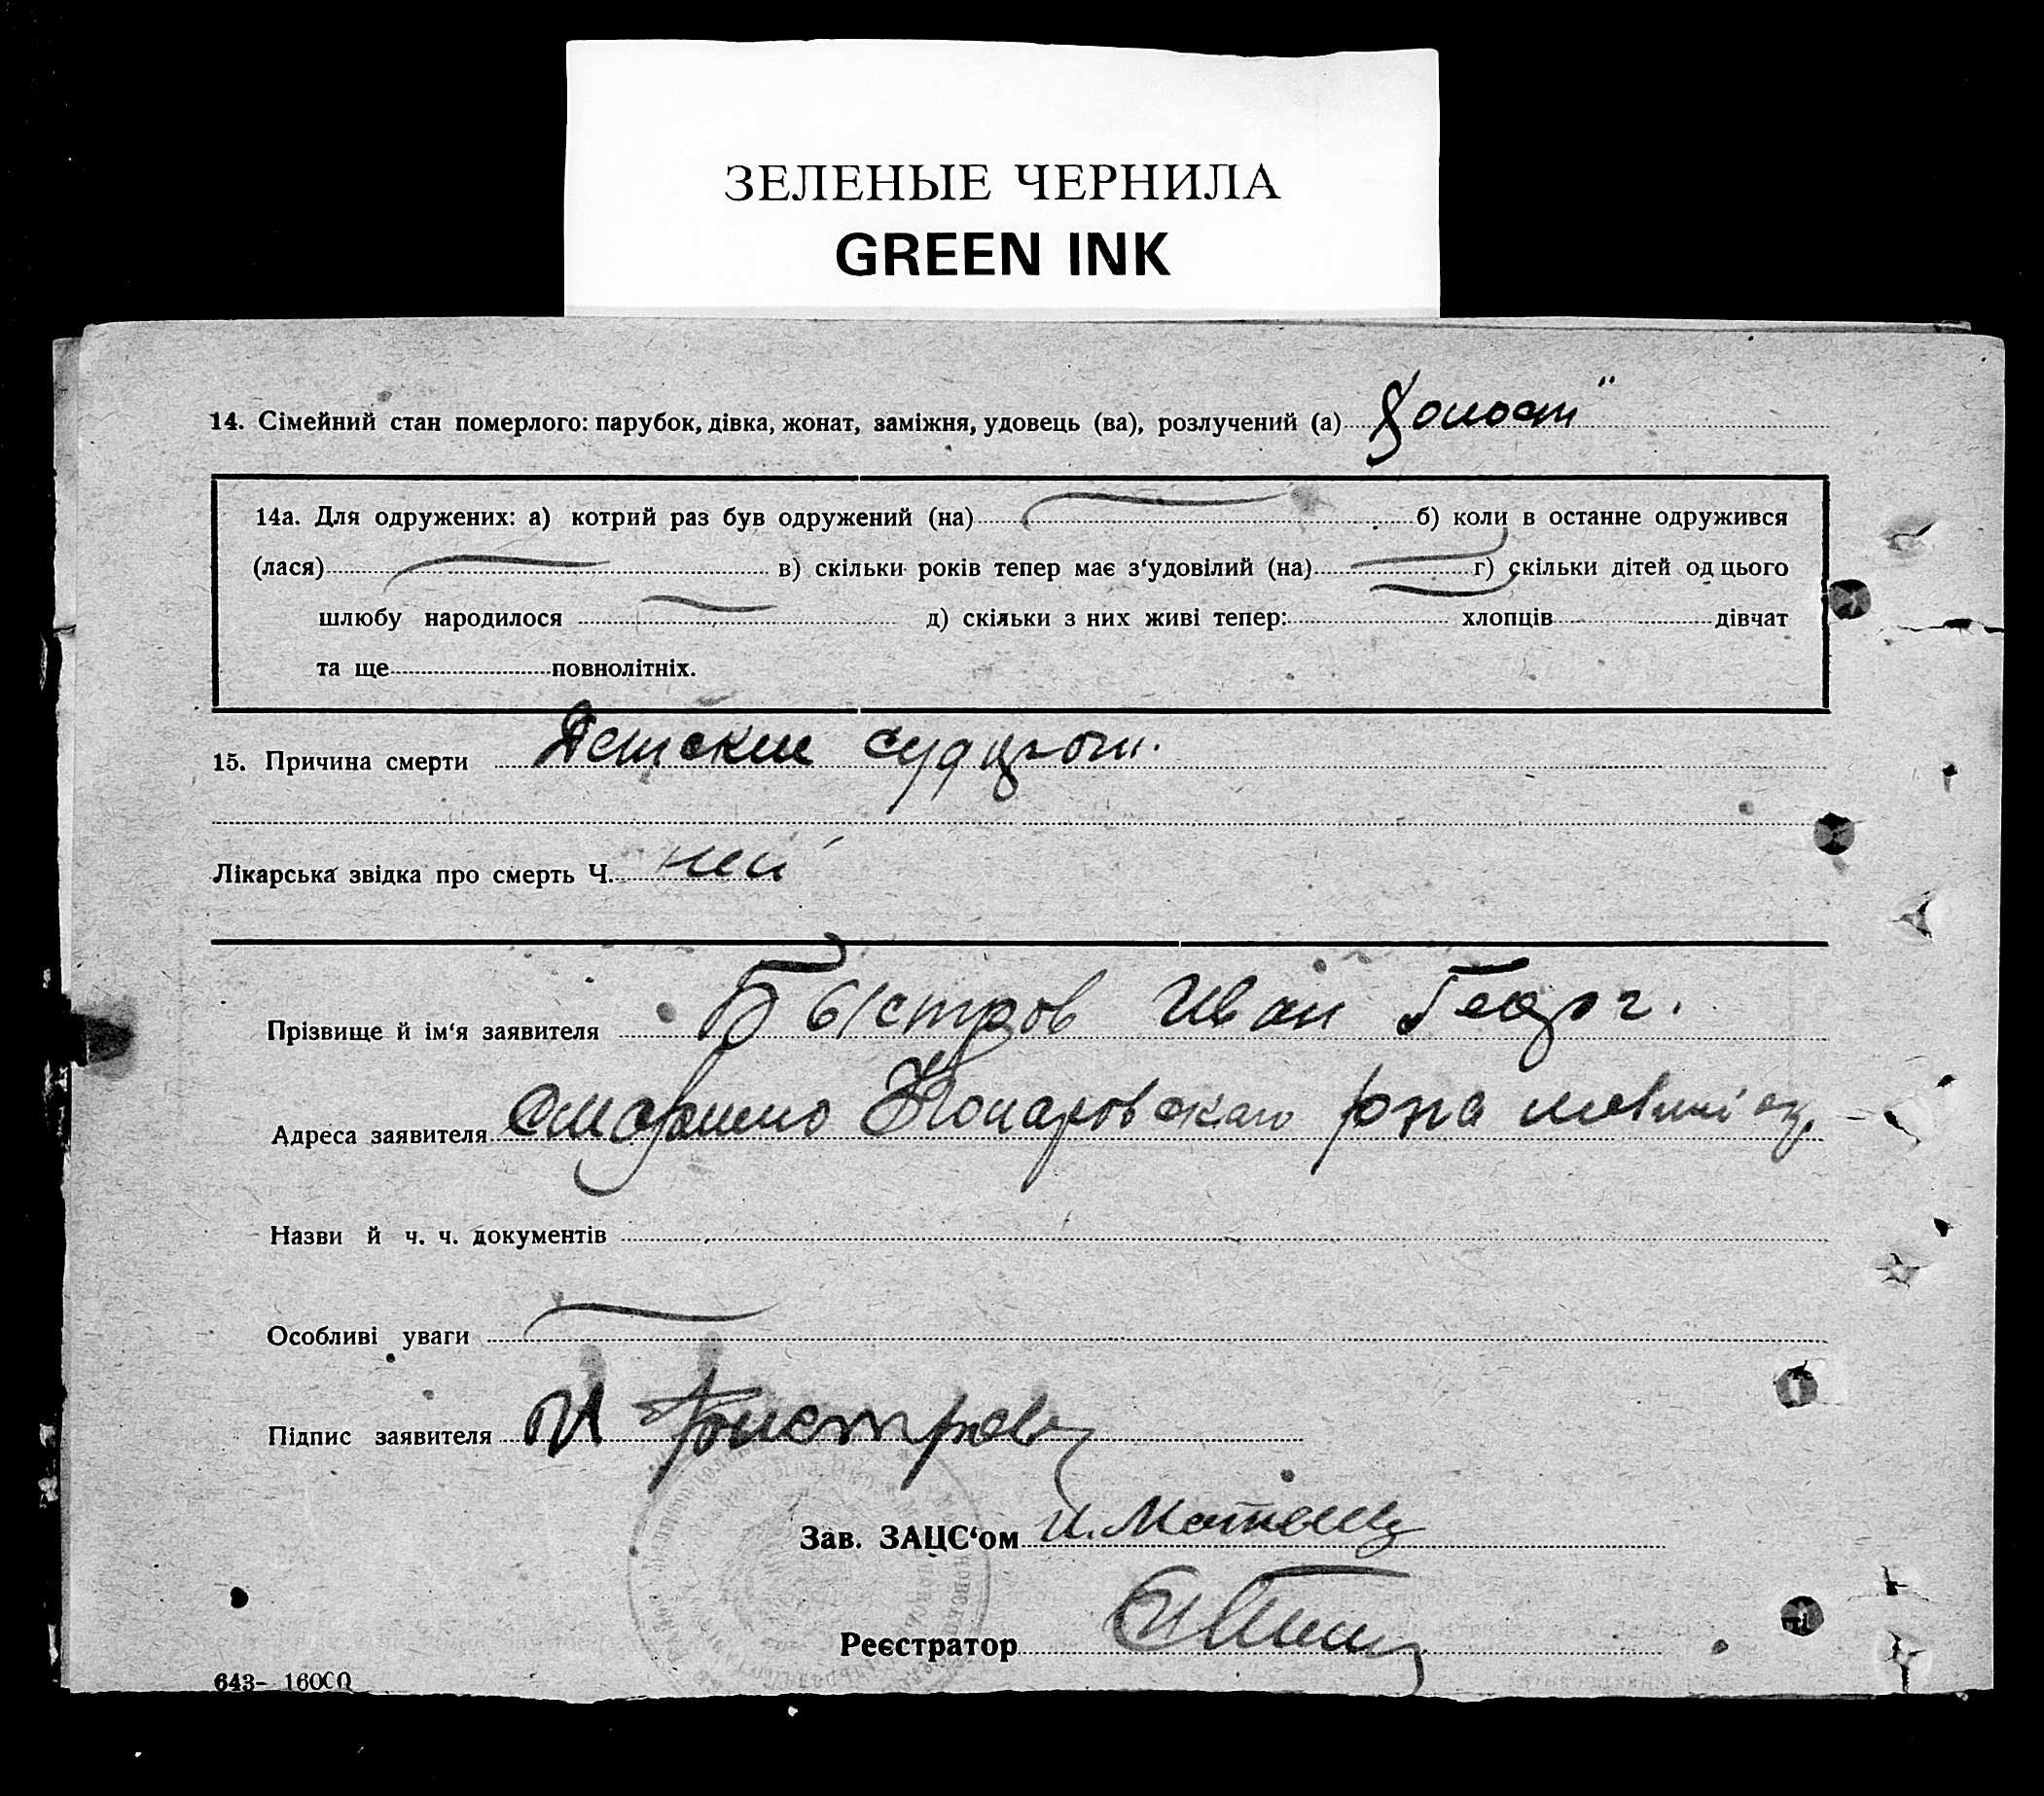 ЗЕЛЕНЫЕ ЧЕРНИЛА
GREEN INK
14. Сімейний стан померлого: парубок, дівка, жонат, заміжня, удовець (ва), розлучений (а) Холост
14а. Для одружених: а) котрий раз був одружений (на) б) коли в останне одружився
(лася) в) скільки років тепер має з'удовілий (на) г) скільки дітей од цього
шлюбу народилося д) скільки з них живі тепер: хлопців дівчат
та ще повнолітніх.
15. Причина смерти Детские
Лікарська звідка про смерть Ч.
Прізвище й ім'я заявителя Быстров Иван Георг.
Адреса заявителя
Назви й ч. ч. документів
Особливі уваги
Підпис заявителя И Быстров
Зав. ЗАЦС'ом
Реєстратор
643- 16000